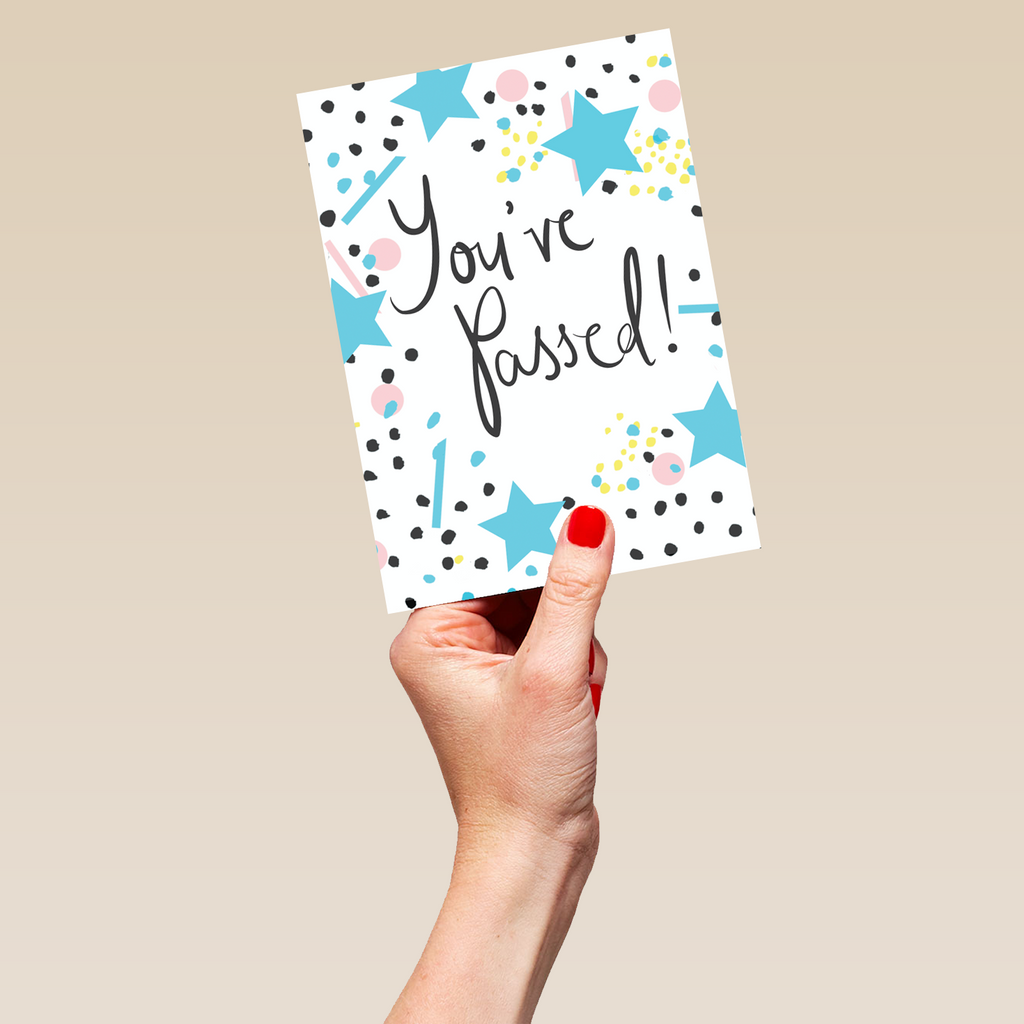 You've
Passed!